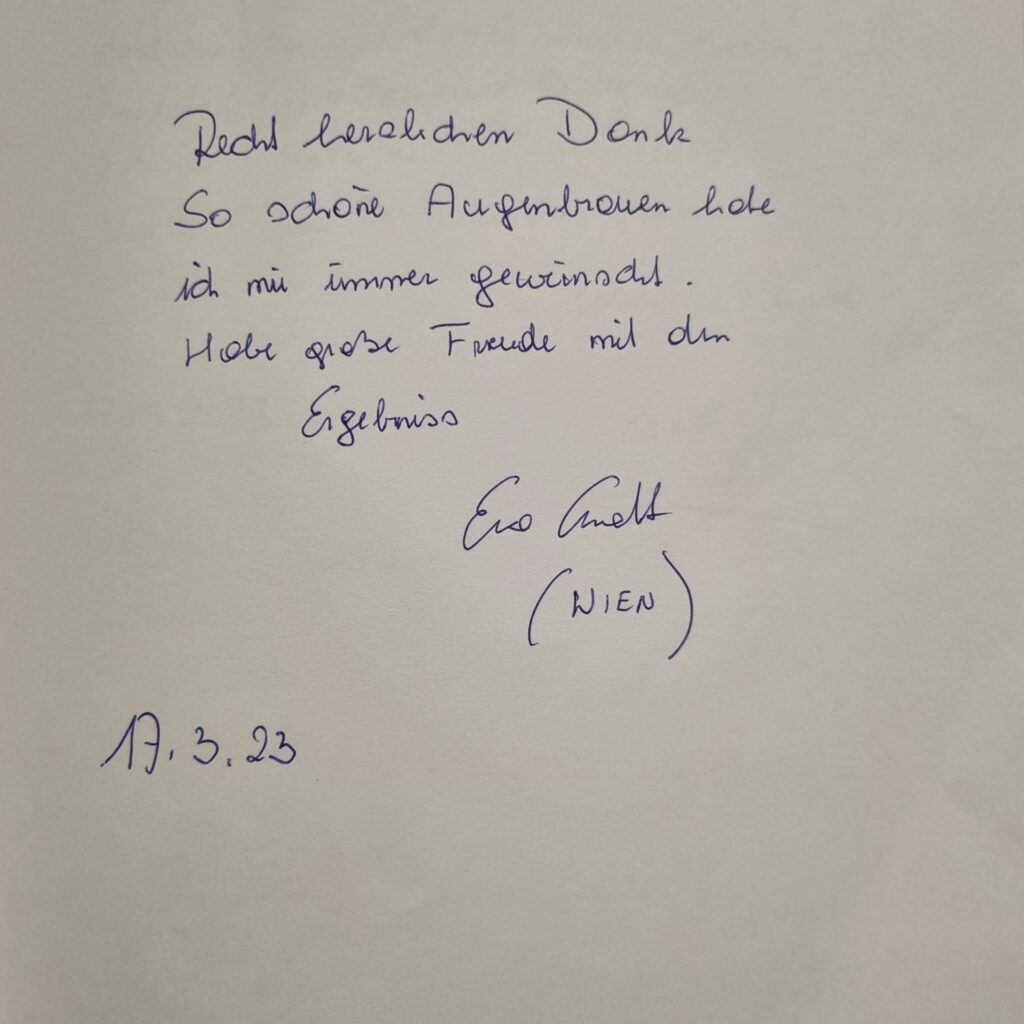 Recht herzlichen Dank
So schöne Augenbrauen habe
ich mir immer gewünscht.
Habe große Freude mit den
Ergebniss
Eva
(WIEN)
17.3.23